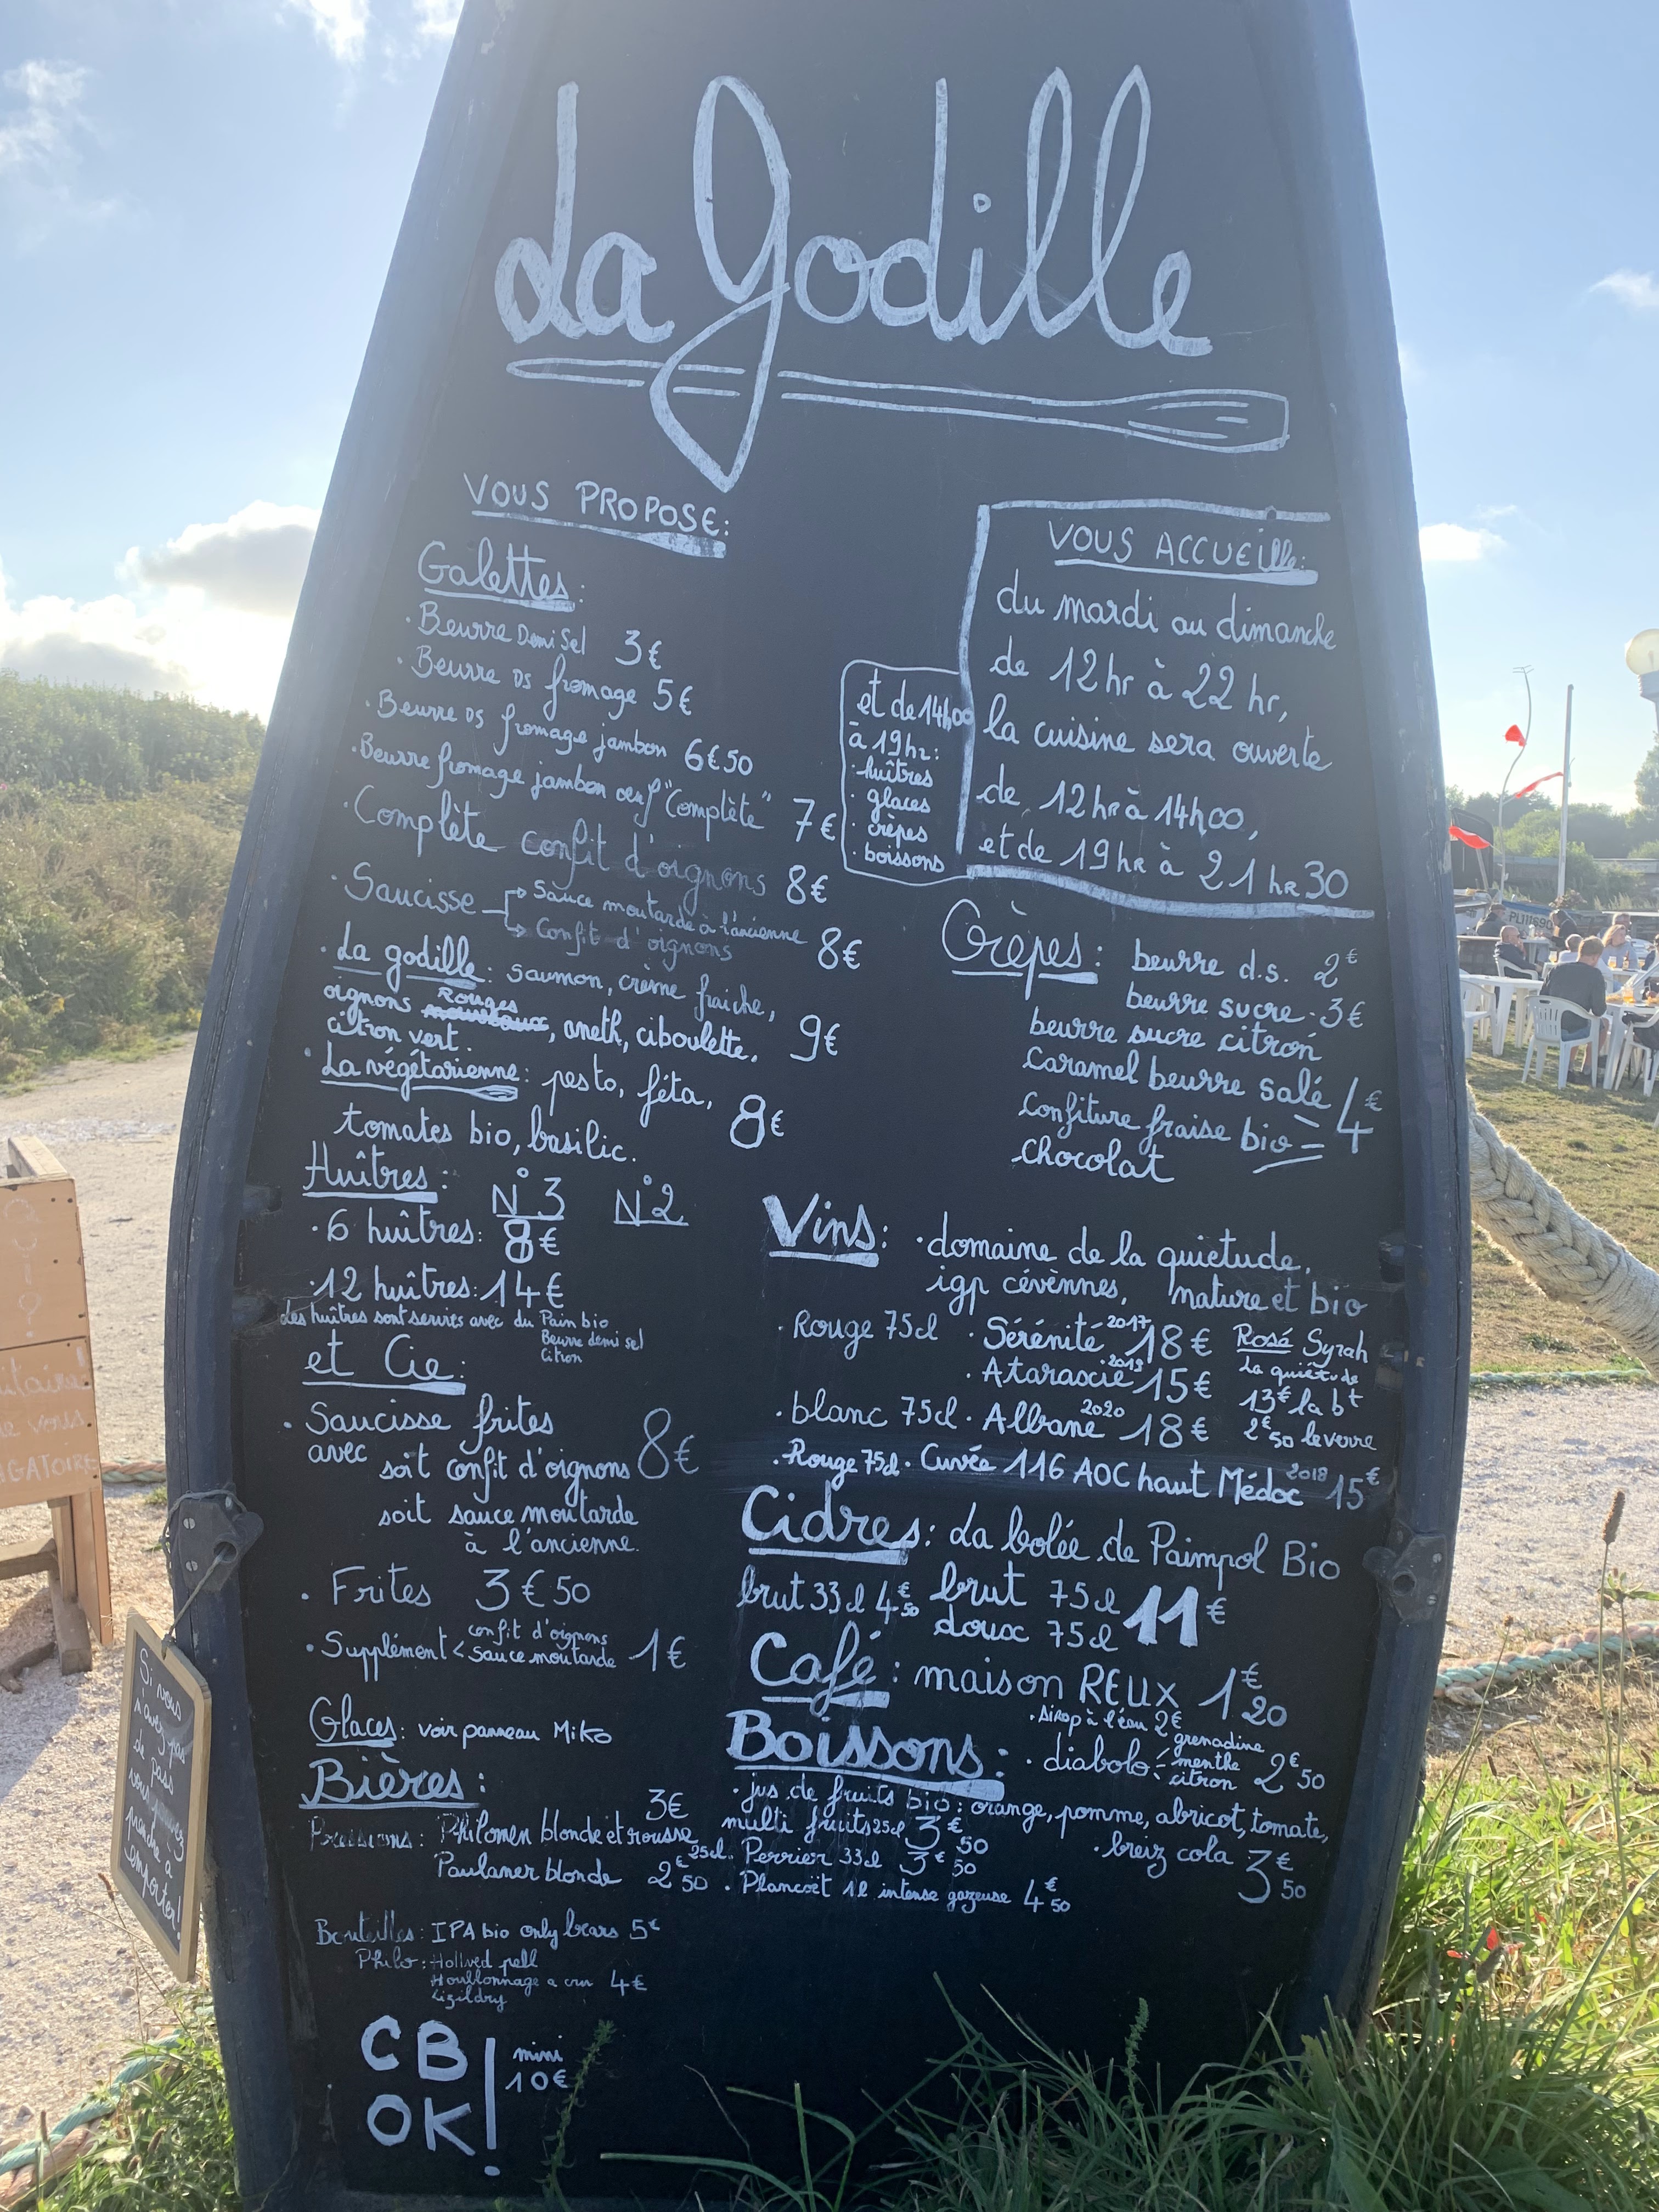 La Godille
VOUS PROPOSE:
Galettes:
· Beurre Demi Sel 3€
· Beurre DS fromage 5€
· Beurre DS fromage jambon 6€50
· Beurre fromage jambon oeuf "Complète" 7€
· Complète confit d'oignons 8€
· Saucisse → Sauce moutarde à l'ancienne
→ Confit d'oignons 8€
· La godille: saumon, crème fraiche,
oignons Rouges, aneth, ciboulette,
citron vert. 9€
· La végétarienne: pesto, féta,
tomates bio, basilic. 8€
Huîtres: N°3 N°2
· 6 huîtres: 8€
· 12 huîtres: 14€
Les huîtres sont servies avec du Pain bio
Beurre demi sel
Citron
et Cie:
· Saucisse frites
avec soit confit d'oignons 8€
soit sauce moutarde
à l'ancienne.
· Frites 3€50
· Supplément < confit d'oignons
Sauce moutarde 1€
Glaces: voir panneau Miko
Bières:
3€
Pressions: Philomen blonde et rousse
25cl.
Paulaner blonde 2€50
Bouteilles: IPA bio only bears 5€
Philo: Hollved pell
Houblonnage a cru 4€
CB
OK! mini
10€
VOUS ACCUEille:
du mardi au dimanche
de 12hr à 22hr,
la cuisine sera ouverte
de 12hr à 14h00,
et de 19hr à 21hr30
et de 14h00
à 19hr:
· huîtres
· glaces
· crèpes
· boissons
Crèpes: beurre d.s. 2€
beurre sucre 3€
beurre sucre citron
Caramel beurre salé
Confiture fraise bio 4€
chocolat
Vins: · domaine de la quietude,
igp cévènnes, nature et bio
· Rouge 75cl · Sérénité 2017 18€
· Ataraxie 15€
Rosé Syrah
La quiétude
13€ la bt
2€50 le verre
· blanc 75cl · Albane 2020 18€
· Rouge 75cl · Cuvée 116 AOC haut Médoc 2018 15€
Cidres: La bolée de Paimpol Bio
brut 33cl 4€50 brut 75cl
doux 75cl 11€
Café: maison REUX 1€20
Boissons: · sirop à l'eau 2€
· diabolo - grenadine
menthe
citron 2€50
· jus de fruits bio: orange, pomme, abricot, tomate,
multi fruits 25cl 3€50
· breiz cola 3€50
· Perrier 33cl 3€50
· Plancoët 1l intense gazeuse 4€50
Si vous
n'avez pas
de pass
vous pouvez
prendre à
emporter!